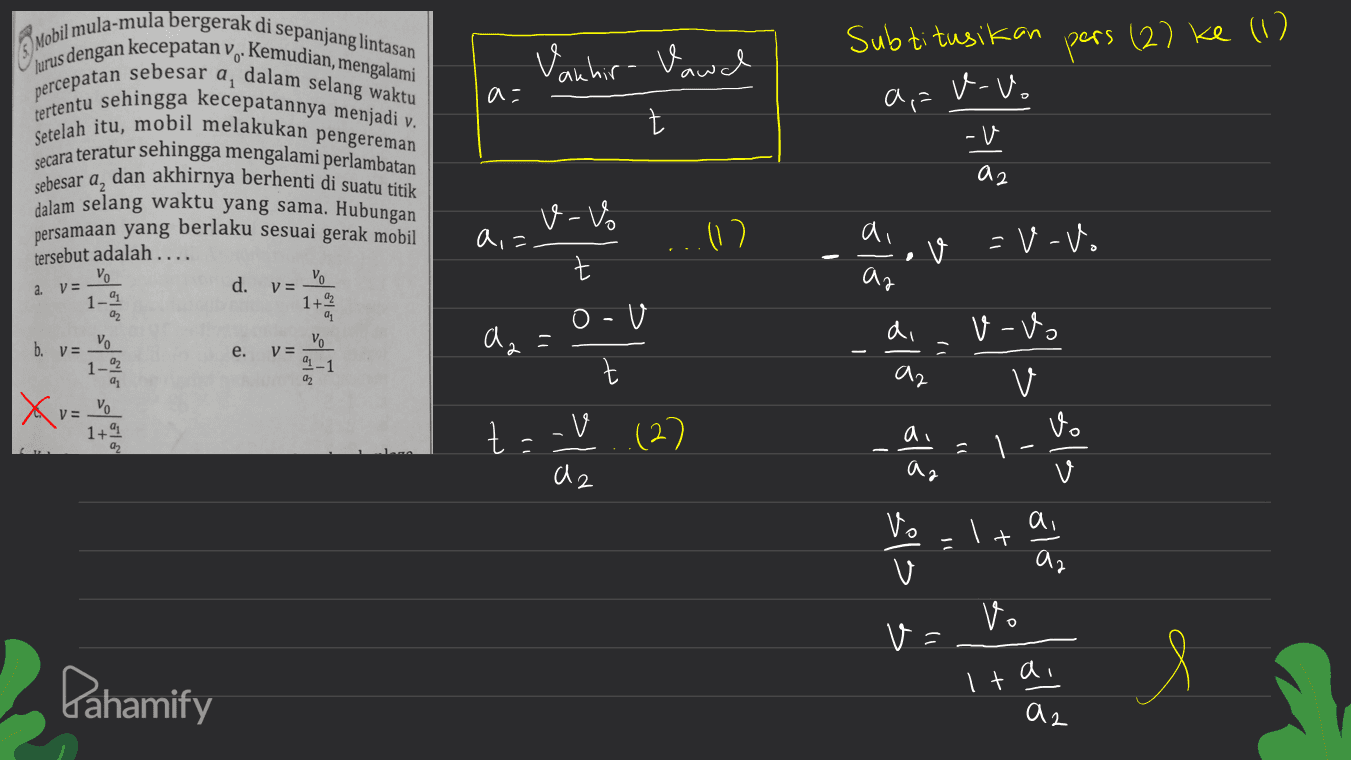 5. Mobil mula-mula bergerak di sepanjang lintasan
lurus dengan kecepatan v₀. Kemudian, mengalami
percepatan sebesar a₁ dalam selang waktu
tertentu sehingga kecepatannya menjadi v.
Setelah itu, mobil melakukan pengereman
secara teratur sehingga mengalami perlambatan
sebesar a₂ dan akhirnya berhenti di suatu titik
dalam selang waktu yang sama. Hubungan
persamaan yang berlaku sesuai gerak mobil
tersebut adalah ....
a. v = v₀ / (1 - a₁/a₂)
b. v = v₀ / (1 - a₂/a₁)
c. v = v₀ / (1 + a₁/a₂)
d. v = v₀ / (1 + a₂/a₁)
e. v = v₀ / (a₁/a₂ - 1)
a = (Vakhir - Vawal) / t
a₁ = (v - v₀) / t ...(1)
a₂ = (0 - v) / t
t = -v / a₂ ..(2)
Subtitusikan pers (2) ke (1)
a₁ = (v - v₀) / (-v / a₂)
- a₁/a₂ . v = v - v₀
- a₁/a₂ = (v - v₀) / v
- a₁/a₂ = 1 - v₀/v
v₀/v = 1 + a₁/a₂
v = v₀ / (1 + a₁/a₂)
Pahamify